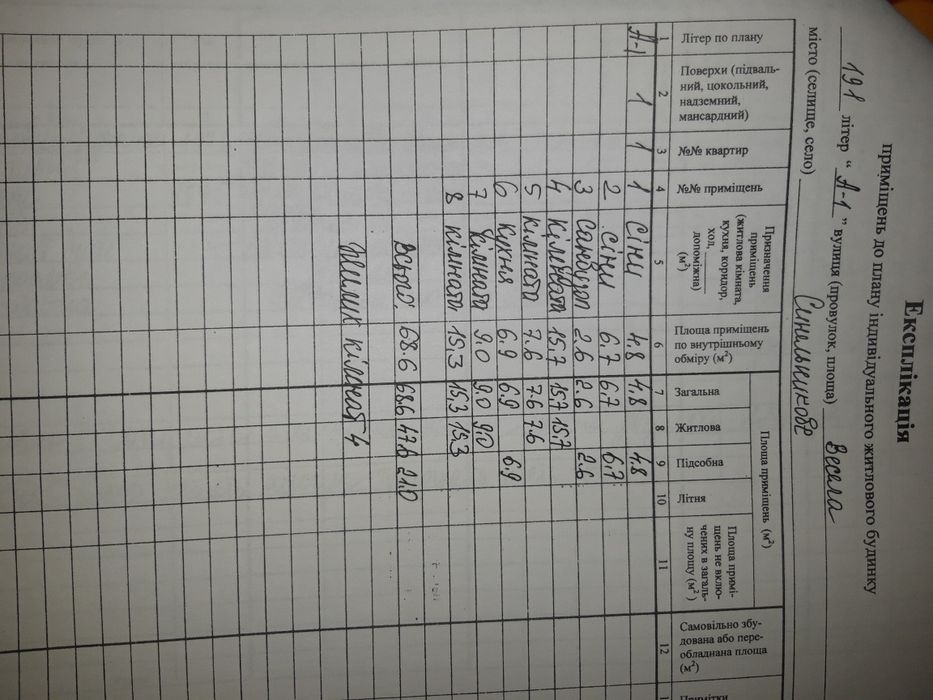 Експлікація
приміщень до плану індивідуального житлового будинку
191 літер “ А-1 ” вулиця (провулок, площа) Весела
місто (селище, село) Синельникове
Літер по плану
Поверхи (підваль-
ний, цокольний,
надземний,
мансардний)
№№ квартир
№№ приміщень
Призначення
приміщень
(житлова кімната,
кухня, коридор,
хол,
допоміжна)
(м²)
Площа приміщень
по внутрішньому
обміру (м²)
Площа приміщень (м²)
Загальна
Житлова
Підсобна
Літня
Площа примі-
щень не вклю-
чених в загаль-
ну площу (м²)
Самовільно збу-
дована або пере-
обладнана площа
(м²)
Примітки
1 2 3 4 5 6 7 8 9 10 11 12 1
А-1 1 1 1 Сіни 4.8 4.8 4.8
2 Сіни 6.7 6.7 6.7
3 Санвузол 2.6 2.6 2.6
4 Кімната 15.7 15.7 15.7
5 Кімната 7.6 7.6 7.6
6 Кухня 6.9 6.9 6.9
7 Кімната 9.0 9.0 9.0
8 Кімната 15.3 15.3 15.3
Всього 68.6 68.6 47.6 21.0
Житлик кімнат 4